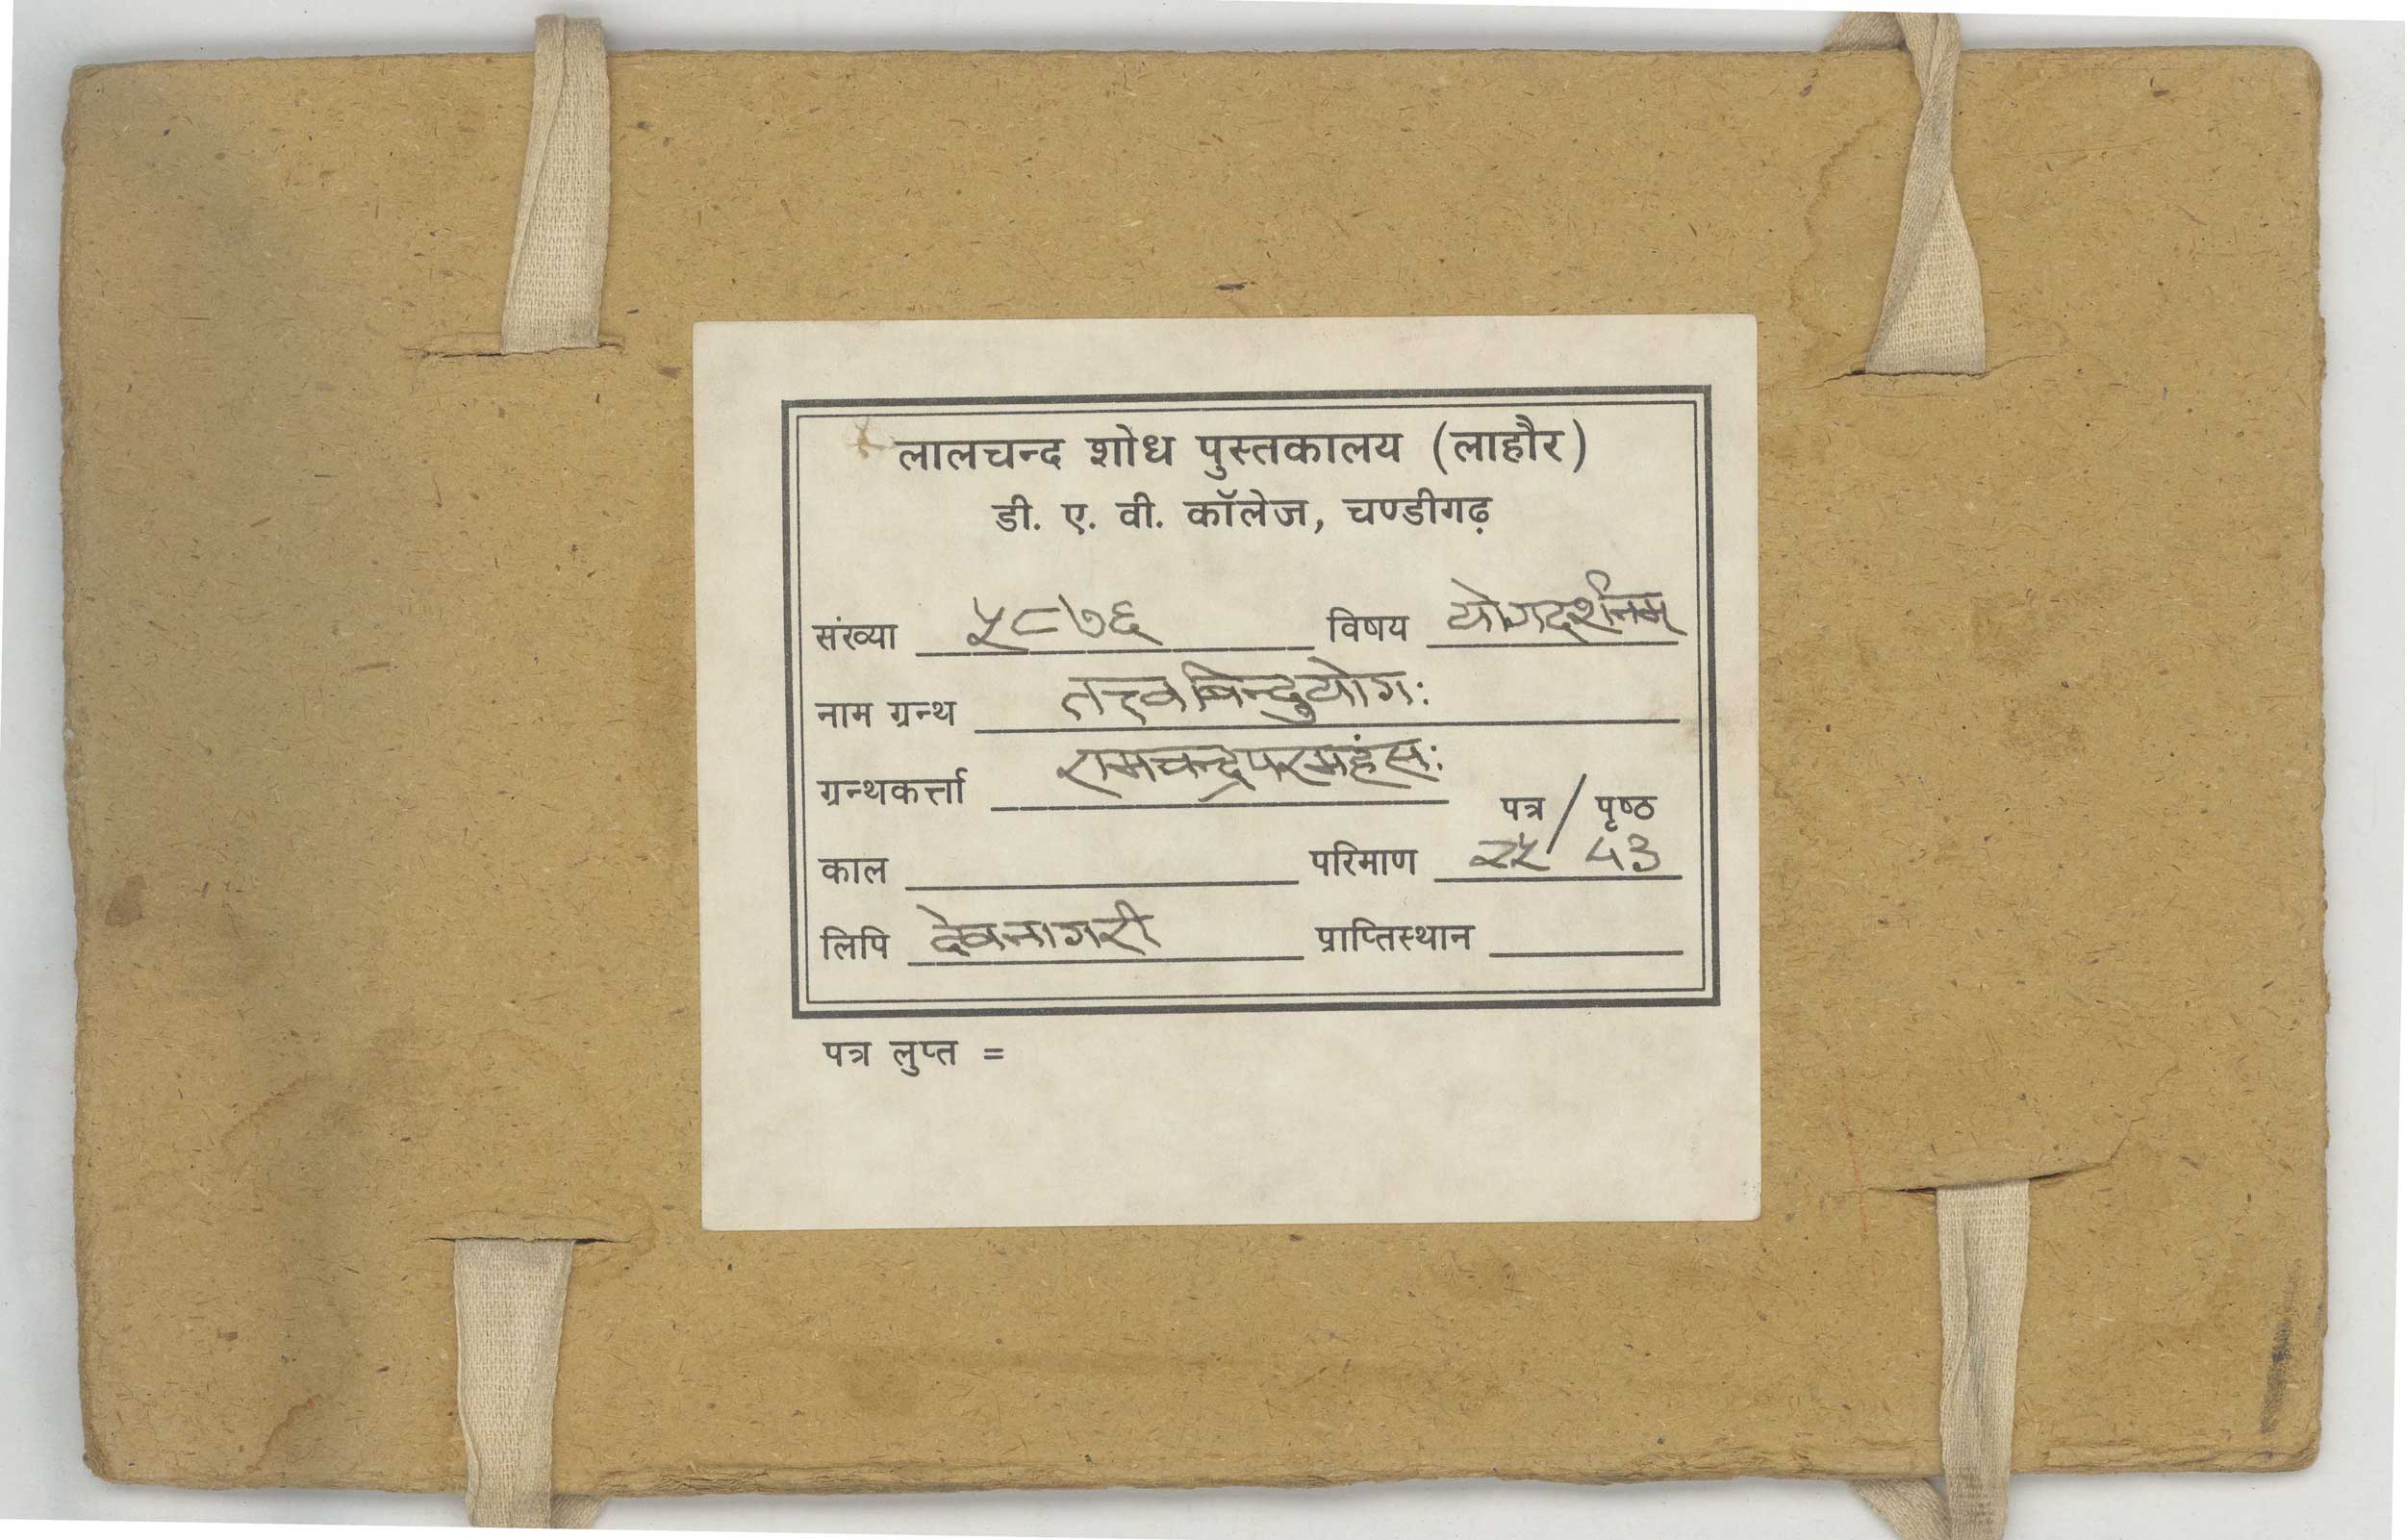 लालचन्द शोध पुस्तकालय (लाहौर)
डी. ए. वी. कॉलेज, चण्डीगढ़
संख्या ५८७६ विषय योगदर्शनम्
नाम ग्रन्थ तत्त्वबिन्दुयोगः
ग्रन्थकर्त्ता रामचन्द्रपरमहंसः
पत्र / पृष्ठ
काल परिमाण २५/
लिपि देवनागरी प्राप्तिस्थान
पत्र लुप्त =